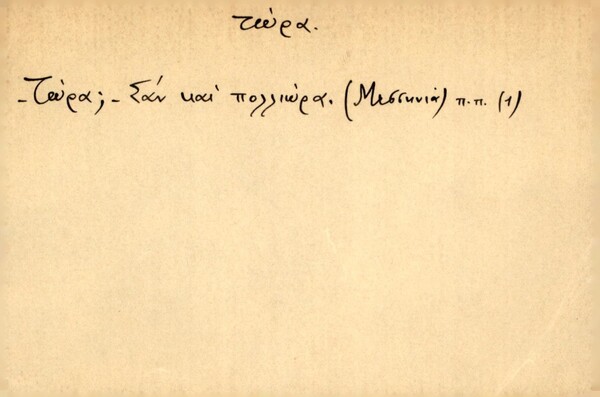 τώρα.
-Τώρα; - Σάν καί πολλιώρα. (Μεσσηνία) π.π. (1)